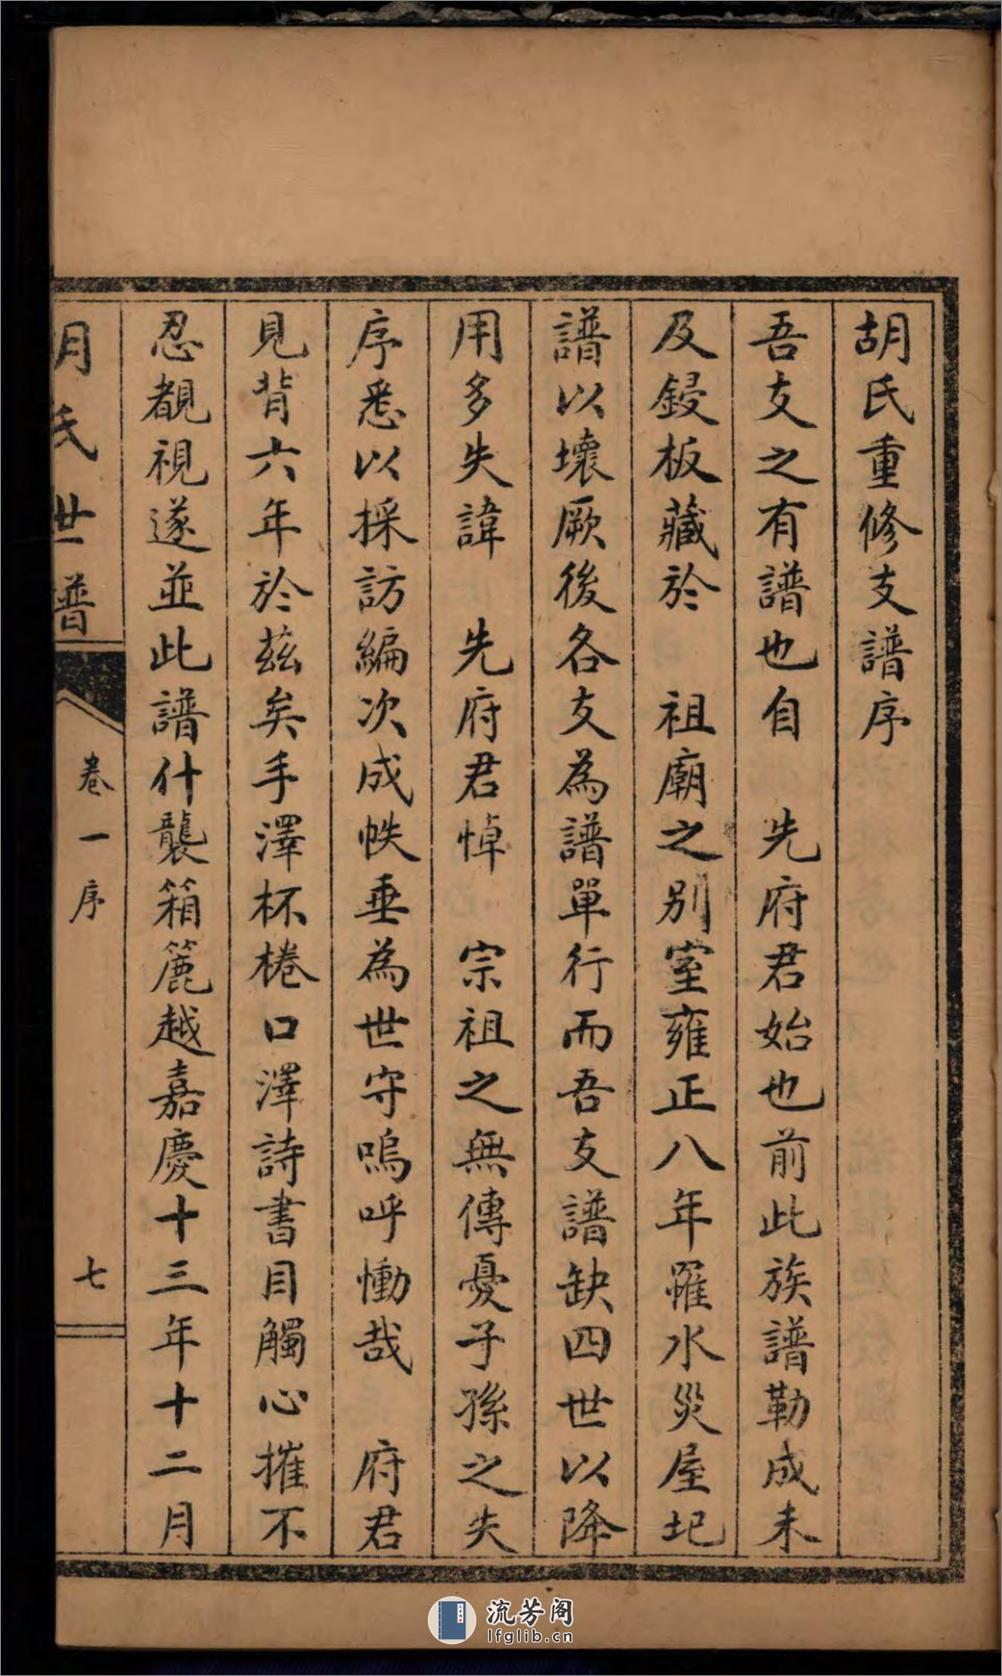 胡氏重修支譜序
吾支之有譜也自　先府君始也前此族譜勒成未
及鋟板藏於　祖廟之別室雍正八年罹水災屋圮
譜以壞厥後各支為譜單行而吾支譜缺四世以降
用多失諱　先府君悼　宗祖之無傳憂子孫之失
序悉以採訪編次成帙垂為世守嗚呼慟哉　府君
見背六年於茲矣手澤杯棬口澤詩書目觸心摧不
忍覩視遂並此譜什襲箱簏越嘉慶十三年十二月
胡氏世譜
卷一序
七
流芳阁
lfglib.cn